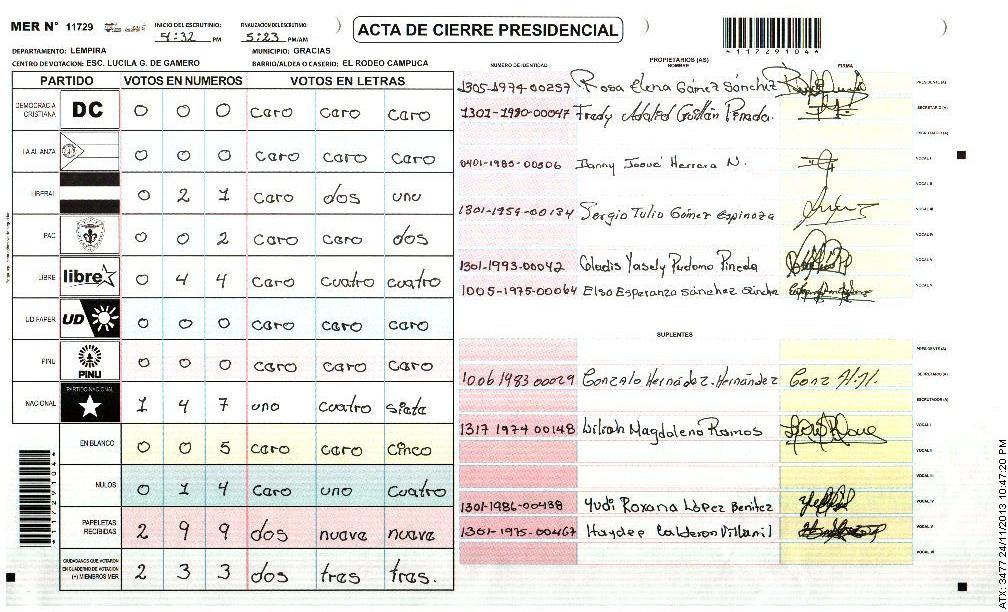 MER N° 11729
INICIO DEL ESCRUTINIO: 4:32 PM
FINALIZACION DEL ESCRUTINIO: 5:23 PM/AM
ACTA DE CIERRE PRESIDENCIAL
*11729104*
DEPARTAMENTO: LEMPIRA
MUNICIPIO: GRACIAS
CENTRO DE VOTACION: ESC. LUCILA G. DE GAMERO
BARRIO/ALDEA O CASERIO: EL RODEO CAMPUCA
PARTIDO VOTOS EN NUMEROS VOTOS EN LETRAS
DEMOCRACIA CRISTIANA DC 0 0 0 caro caro caro
LA ALIANZA 0 0 0 caro caro caro
LIBERAL 0 2 1 caro dos uno
PAC 0 0 2 caro caro dos
LIBRE libre 0 4 4 caro cuatro cuatro
UD FAPER UD 0 0 0 caro caro caro
PINU PINU 0 0 0 caro caro caro
NACIONAL PARTIDO NACIONAL 1 4 7 uno cuatro siete
EN BLANCO 0 0 5 caro caro cinco
NULOS 0 1 4 caro uno cuatro
PAPELETAS RECIBIDAS 2 9 9 dos nueve nueve
CIUDADANOS QUE VOTARON EN CUADERNO DE VOTACION (+) MIEMBROS MER 2 3 3 dos tres tres.
*11729104*
PROPIETARIOS (AS)
NUMERO DE IDENTIDAD NOMBRE FIRMA
1305-1974-00257 Rosa Elena Gómez Sánchez PRESIDENTE (A)
1301-1990-00047 Fredy Adolfo Guillán Pineda. SECRETARIO (A)
ESCRUTADOR (A)
0401-1985-00506 Danny Josué Herrera N. VOCAL I
VOCAL II
1301-1959-00134 Sergio Tulio Gómez Espinoza VOCAL III
VOCAL IV
1301-1993-00042 Gladis Yasely Perdomo Pineda VOCAL V
1005-1975-00064 Elsa Esperanza Sánchez Sánche VOCAL VI
SUPLENTES
PRESIDENTE (A)
1006 1983 00029 Gonzalo Hernádez. Hernández Gonz H.H. SECRETARIO (A)
ESCRUTADOR (A)
1317 1974 00148 Lilian Magdalena Ramos VOCAL I
VOCAL II
VOCAL III
1301-1986-00438 Yudi Roxana López Benitez VOCAL IV
1301-1975-00467 Haydee Calderon Villamil VOCAL V
VOCAL VI
ATX: 3477 24/11/2013 10:47:20 PM